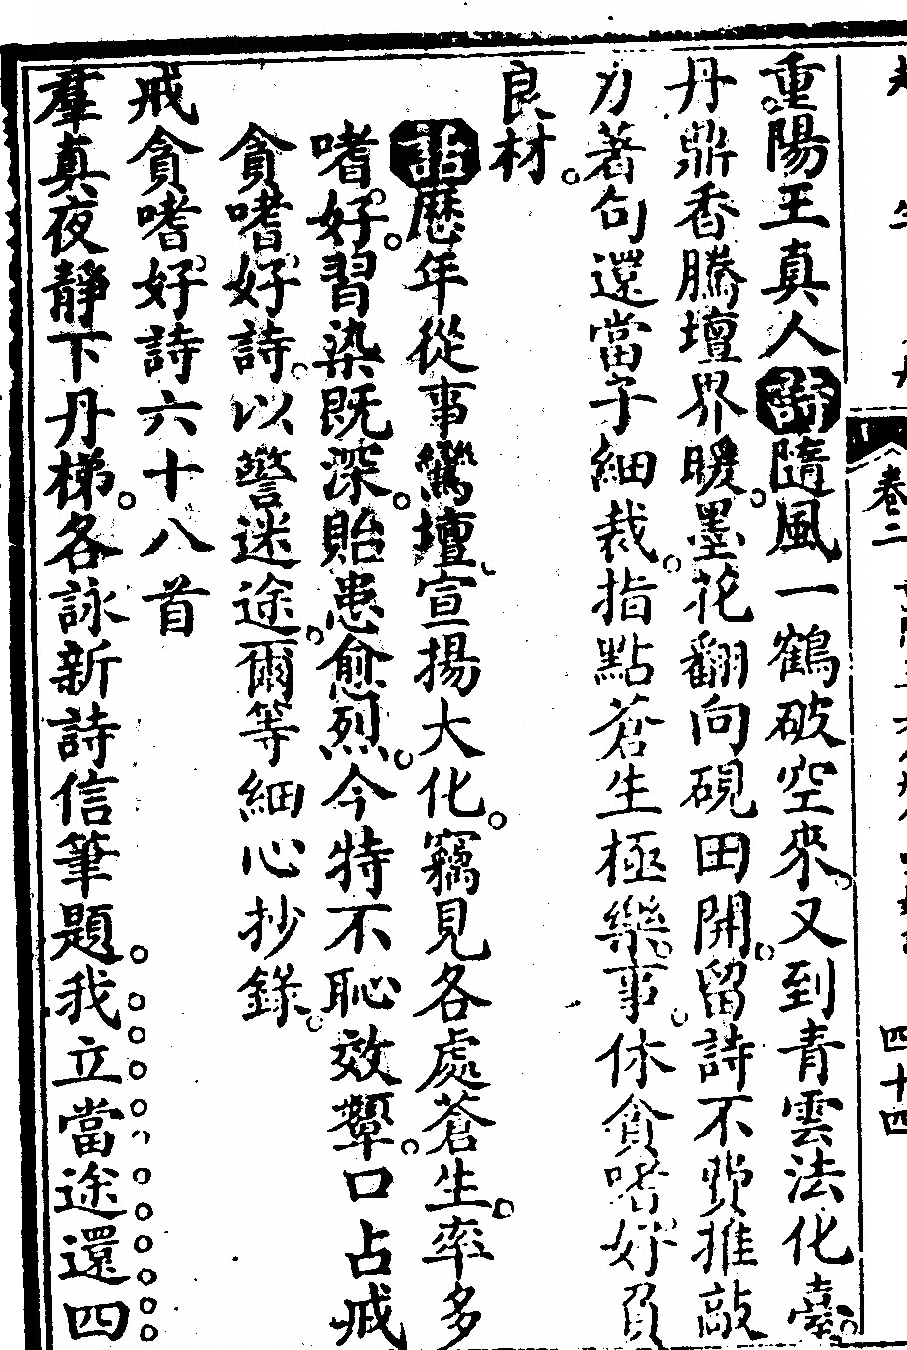 卷二
四十四
重陽王真人詩隨風一鶴破空來又到青雲法化臺
丹鼎香騰壇界暖墨花翻向硯田開留詩不費推敲
力著句還當子細裁指點蒼生極樂事休貪嗜好負
良材
誥歷年從事鸞壇宣揚大化竊見各處蒼生率多
嗜好習染既深貽患愈烈今特不恥效顰口占戒
貪嗜好詩以警迷途爾等細心抄錄
戒貪嗜好詩六十八首
羣真夜靜下丹梯各詠新詩信筆題我立當途還四